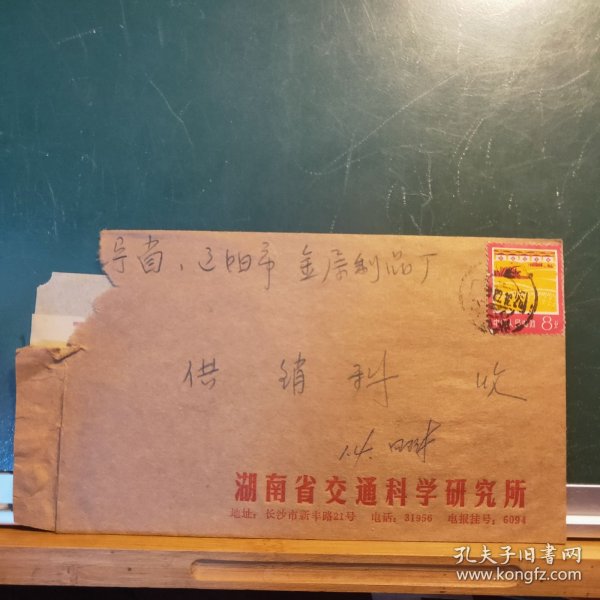 宁省、辽阳市 金属制品厂
供销科 收
湖南省交通科学研究所
地址：长沙市新丰路21号 电话：31956 电报挂号：6094
8分
孔夫子旧书网
www.kongfz.com